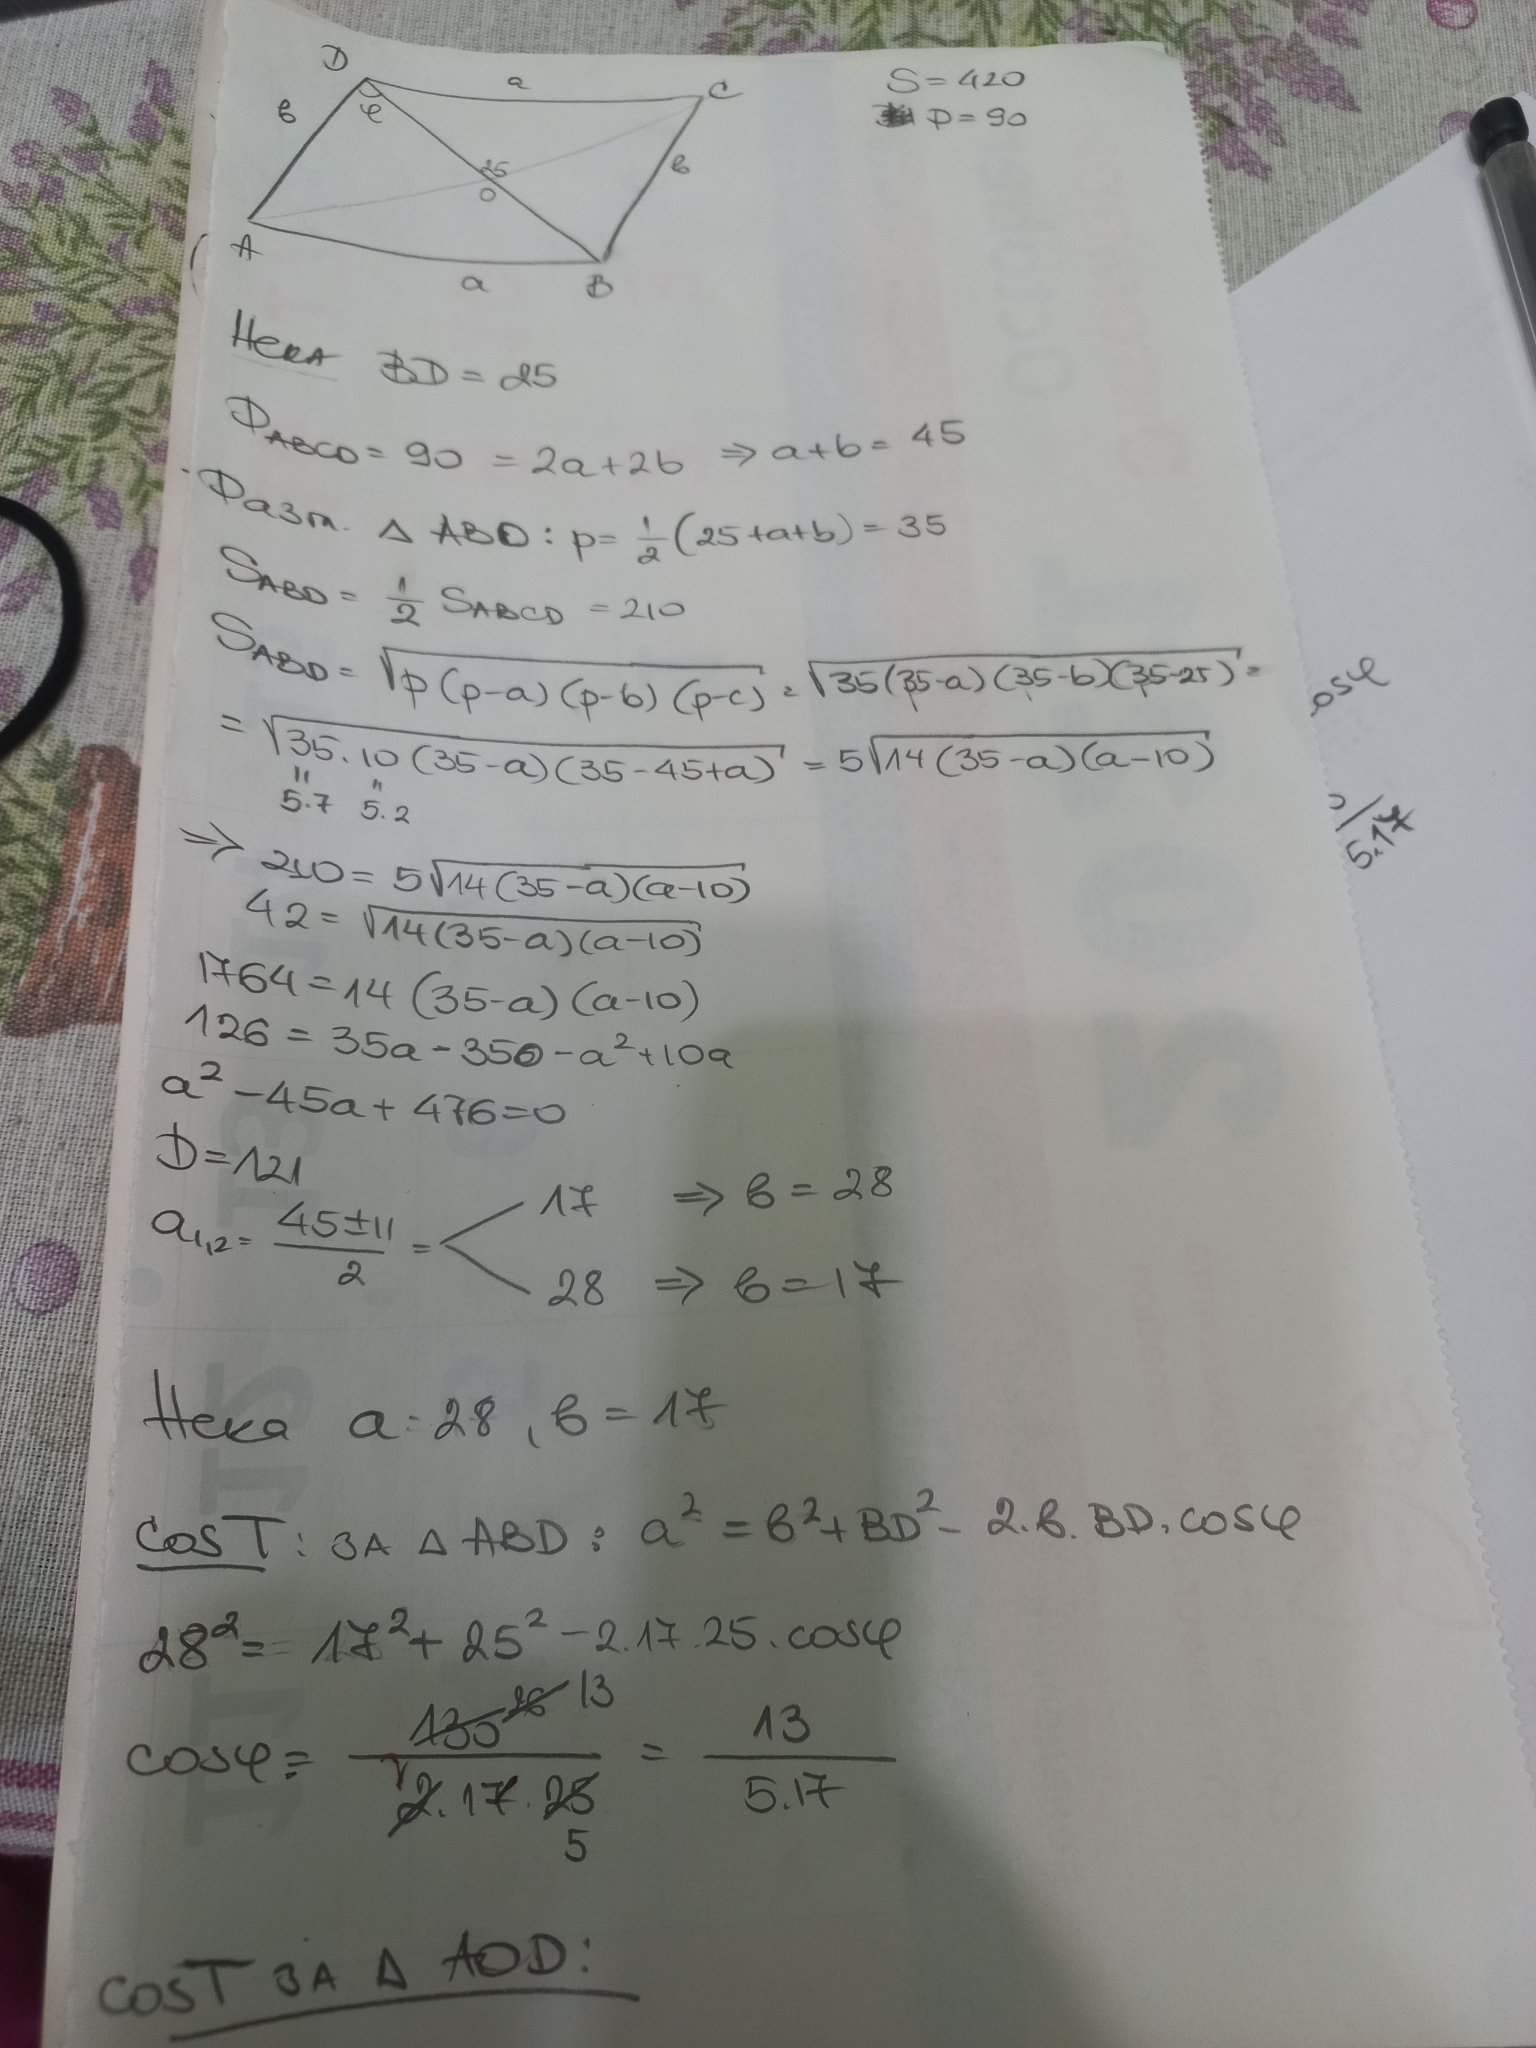 D a C
S = 420
P = 90
в φ
25
O
в
A
a B
Нека BD = 25
PABCD = 90 = 2a+2b ⇒ a+b = 45
Разгл. △ ABD : p = 1/2 (25+a+b) = 35
SABD = 1/2 SABCD = 210
SABD = √p(p-a)(p-b)(p-c) = √35(35-a)(35-b)(35-25) =
= √35.10(35-a)(35-45+a) = 5√14(35-a)(a-10)
5.7 5.2
⇒ 210 = 5√14(35-a)(a-10)
42 = √14(35-a)(a-10)
1764 = 14(35-a)(a-10)
126 = 35a - 350 - a² + 10a
a² - 45a + 476 = 0
D = 121
a1,2 = 45±11/2 = 17 ⇒ в = 28
28 ⇒ в = 17
Нека a = 28, в = 17
cosT: за △ ABD : a² = в² + BD² - 2.в.BD.cosφ
28² = 17² + 25² - 2.17.25.cosφ
cosφ = 130 26 13 / 2.17.25 = 13/5.17
5
cosT за △ AOD:
osφ
5.17